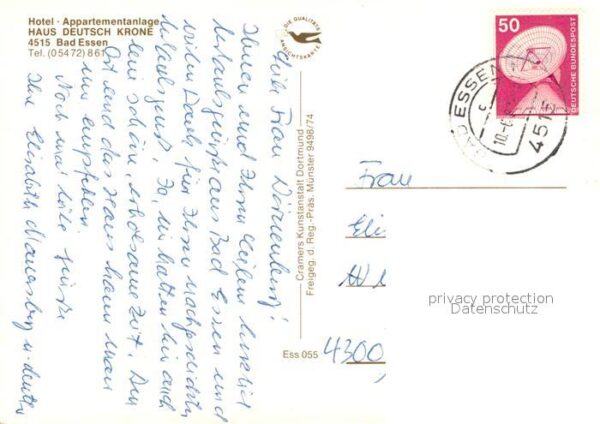 Hotel · Appartementanlage
HAUS DEUTSCH KRONE
4515 Bad Essen
Tel. (05472) 861
DIE QUALITÄTS
ANSICHTSKARTE
Frau
Ihnen und Ihren lieben herzliche
Urlaubsgrüße aus Bad Essen und
vielen Dank für Ihren
Urlaubsgruß. Ja, wir hatten hier auch
eine schöne, erholsame Zeit. Den
Ort und das Haus kann man
nur empfehlen.
Noch mal liebe Grüße
Ihre Elisabeth
Cramers Kunstanstalt Dortmund
Freigeg. d. Reg.-Präs. Münster 9498/74
Ess 055
50
DEUTSCHE BUNDESPOST
BAD ESSEN
4515
Frau
Eli
4300
privacy protection
Datenschutz